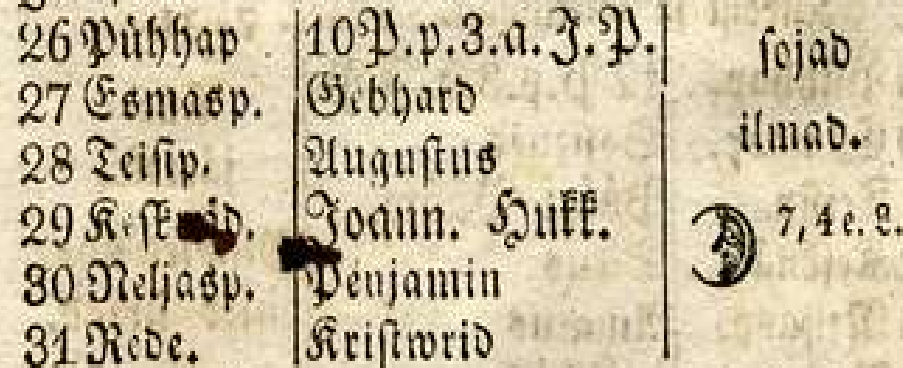 26 Pühhap 10 P. p. 3. a. J. P. sojad
27 Esmasp. Gebhard ilmad.
28 Teisip. Augustus
29 Joann. Hukk. 7, 4 e. L.
30 Neljasp. Penjamin
31 Rede. Kristwrid